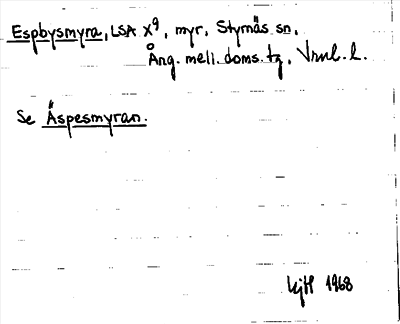 Espbysmyra, LSA X9, myr, Styrnäs sn,
Ång. meli. doms. tg, Vrnl. l.
Se Äspesmyran.
1968